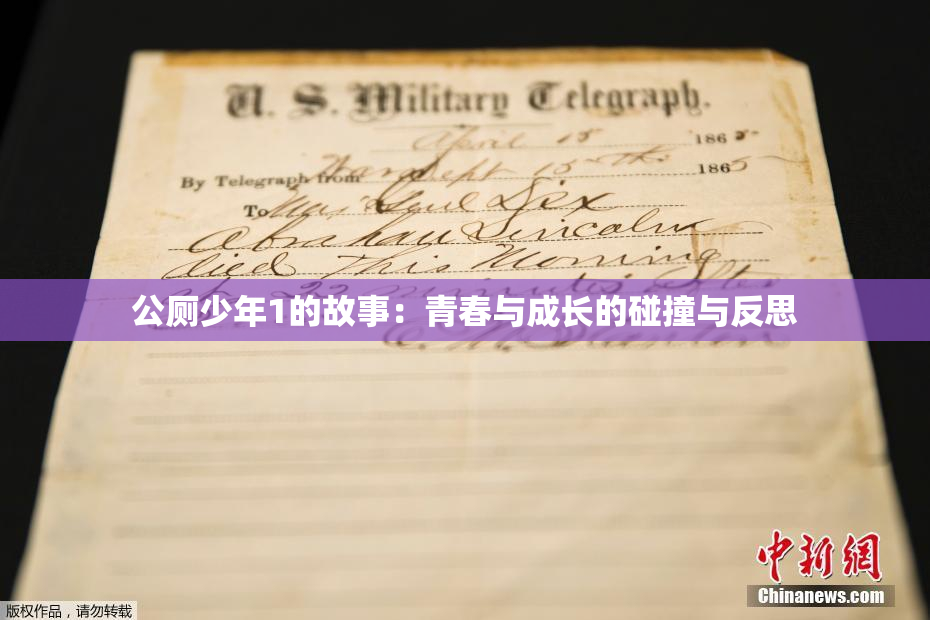 U. S. Military Telegraph.
April 15 1865
By Telegraph from War Dept 15th 1865
To Maj Genl Dix
Abraham Lincoln
died This Morning
at 22 minutes after
公厕少年1的故事：青春与成长的碰撞与反思
E. M. Stanton
中新网
Chinanews.com
版权作品，请勿转载